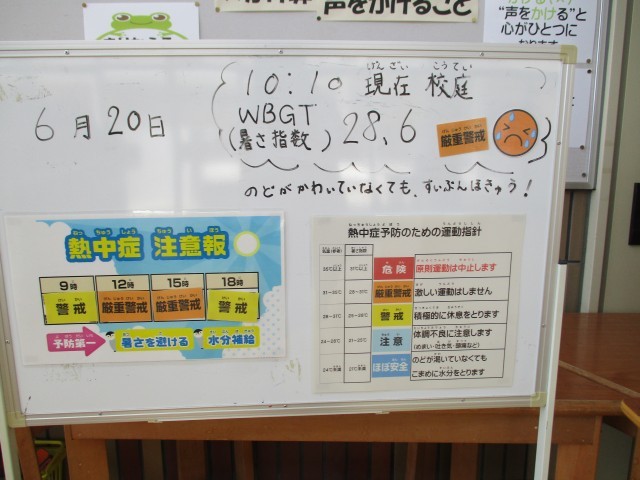 声をかけること
"声をかける"と
心がひとつに
なります
10:10 現在 校庭
げんざい こうてい
6月20日
WBGT
(暑さ指数) 28.6
厳重警戒
のどがかわいていなくても、すいぶんほきゅう!
熱中症 注意報
9時 12時 15時 18時
警戒 厳重警戒 厳重警戒 警戒
予防第一 暑さを避ける 水分補給
熱中症予防のための運動指針
危険 原則運動は中止します
厳重警戒 激しい運動はしません
警戒 積極的に休息をとります
注意 体調不良に注意します
(めまい・吐き気・頭痛など)
ほぼ安全 のどが渇いていなくても
こまめに水分をとります